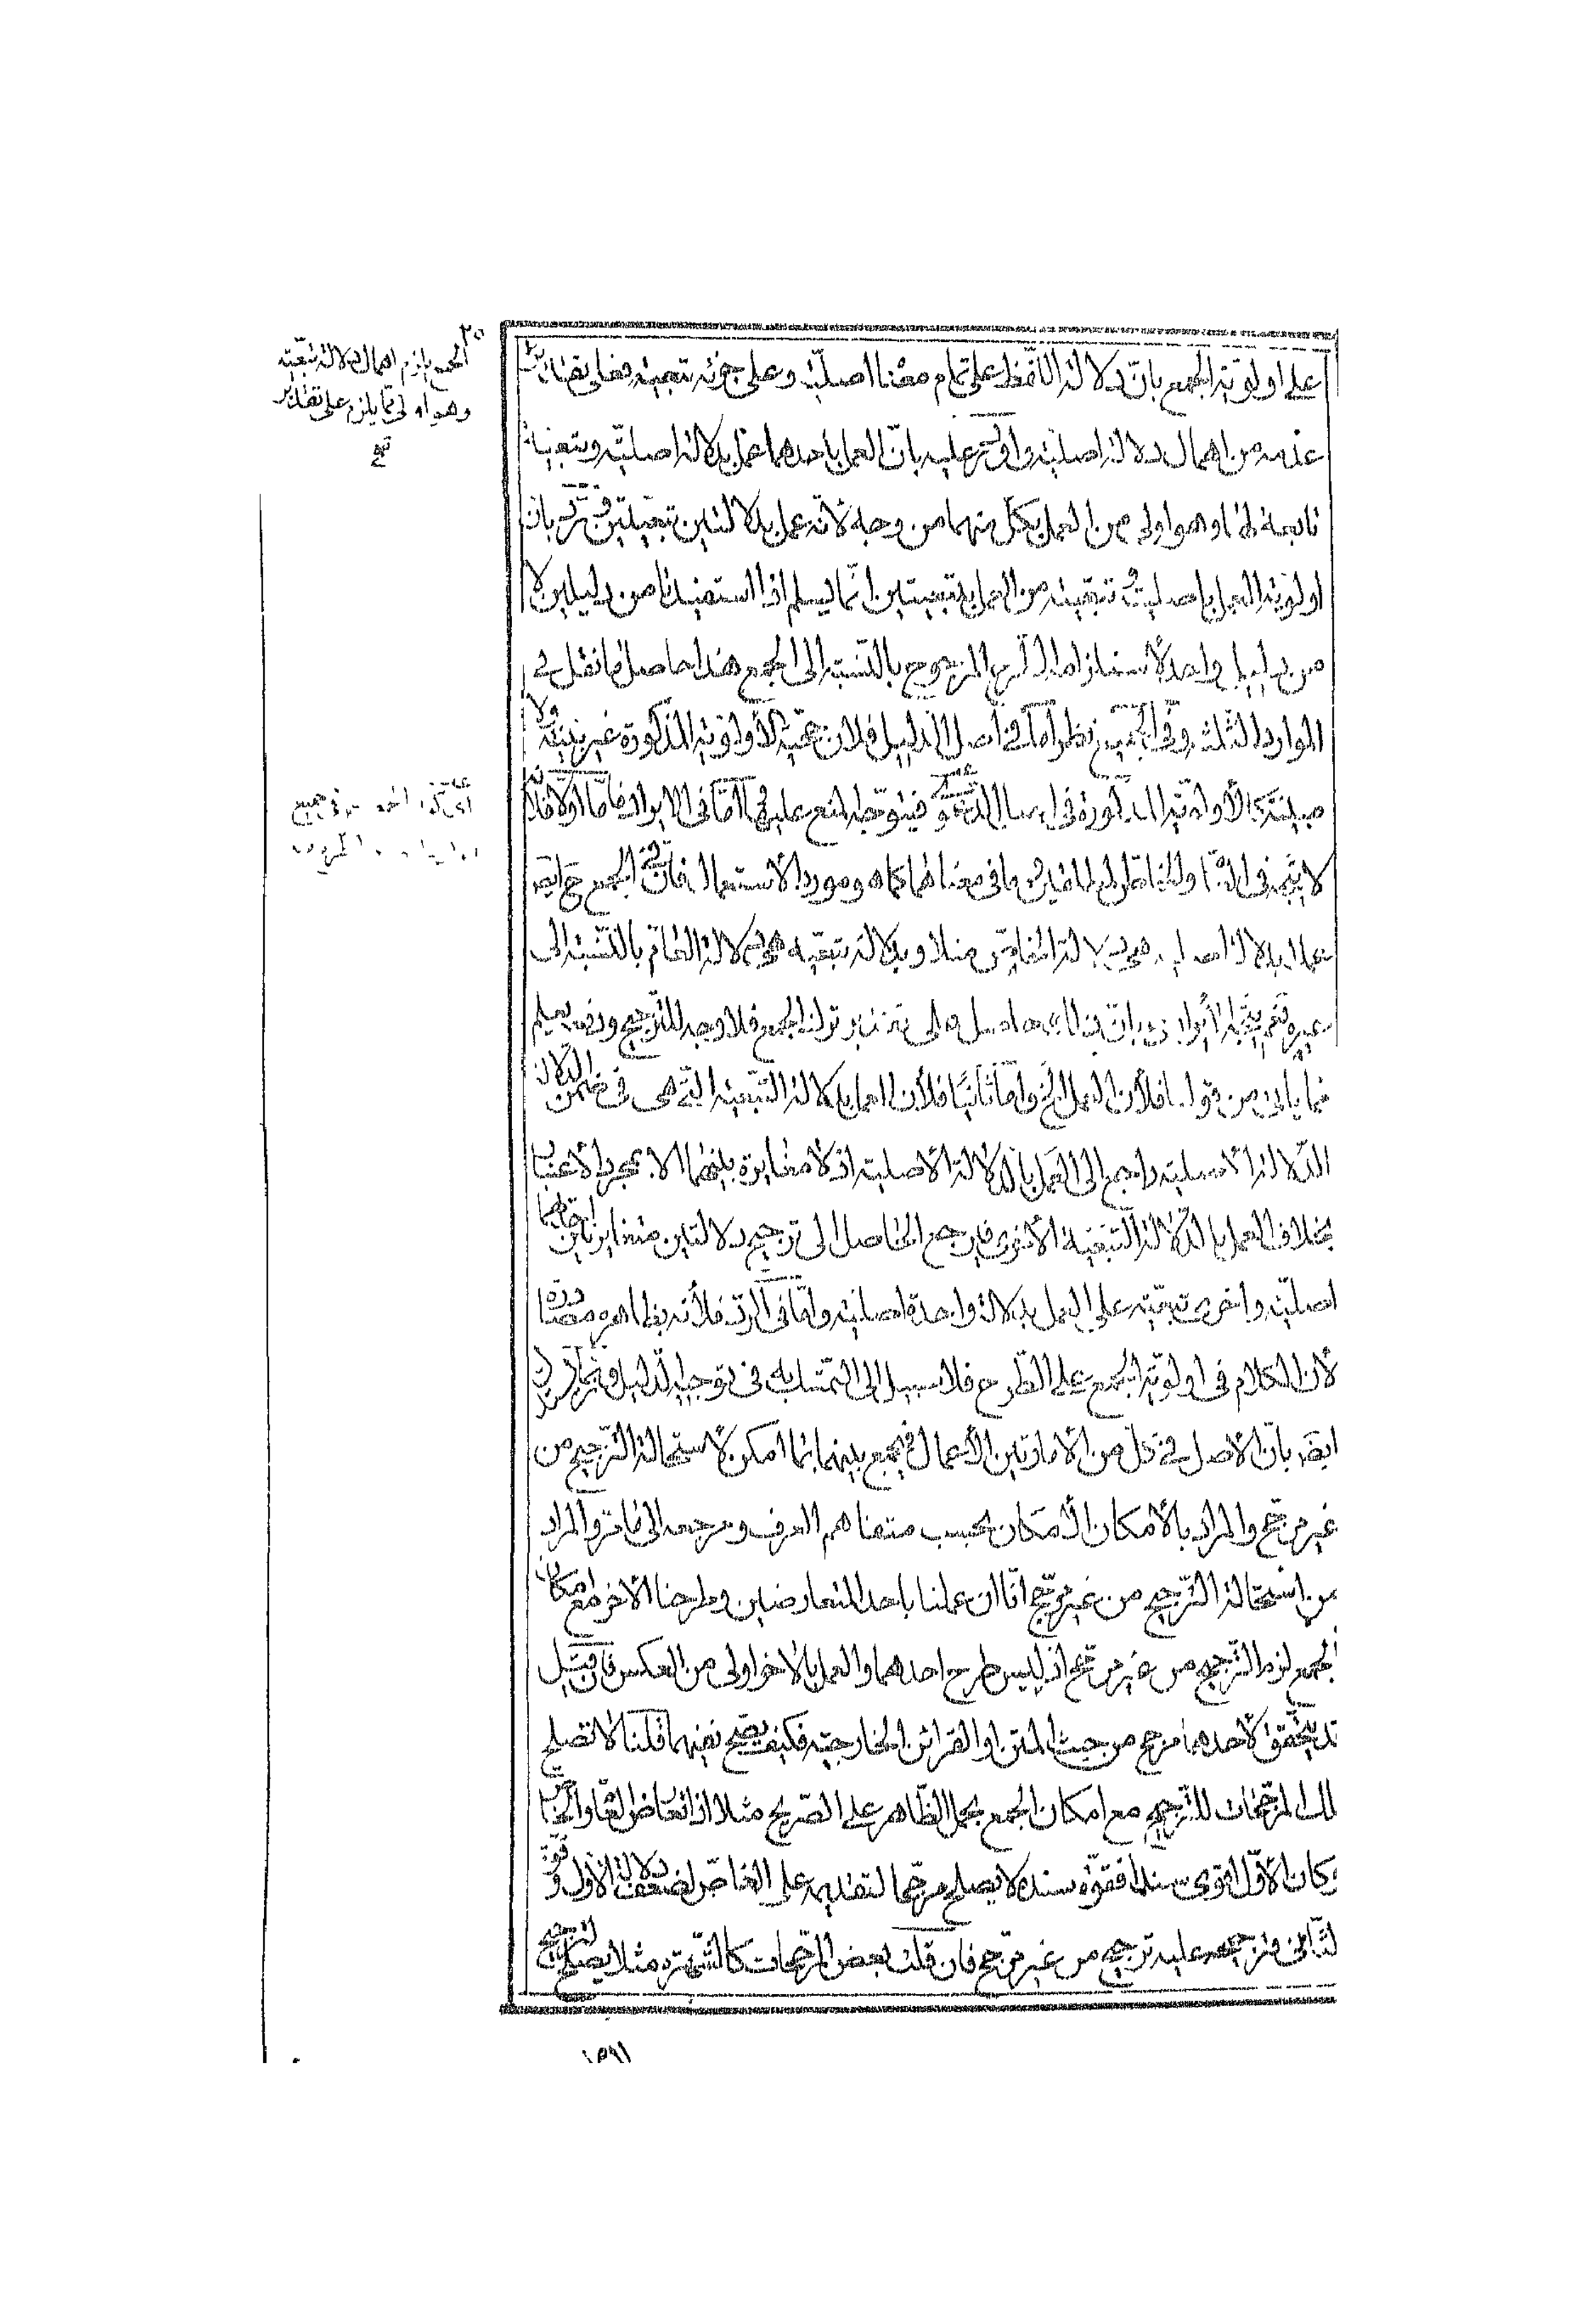 على اولوية الجمع بان دلالة اللفظ على تمام معناه اصلية وعلى جزئه تبعية فعلى تقدير
عدمه من اهمال دلالة اصلية واعترض عليه بان العمل باحدهما عمل بدلالة اصلية وتبعية
تابعة لها وهو اولى من العمل بكل منهما من وجه لانه عمل بدلالتين تبعيتين بان
اولوية العمل باصلية وتبعية من العمل بتبعيتين انما يسلم اذا استفيدتا من دليلين لا
من دليل واحد لاستلزامه المرجوح بالنسبة الى الجمع هذا حاصل ما نقل في
الموارد الثلثة وفي الجميع نظر اما في اصل الدليل فلان حجية الاولوية المذكورة غير بينة ولا
مبينة الاولوية المذكورة في فيتوجه المنع عليها اما في الايراد فاما اولا فلانه
لا يتم في العام والخاص المطلقين وما في معناهما كما هو مورد الاستعمال فان في الجمع ح ايضا
عملا بدلالة اصلية هي دلالة الخاص مثلا وبدلالة تبعية هي دلالة العام بالنسبة الى
غيره ترك الجمع فلا وجه للترجيح
فيما ياتي من قوله فلان العمل الخ واما ثانيا فلان العمل بالدلالة التبعية التي هي في ضمن
الدلالة الاصلية راجع الى العمل بالدلالة الاصلية اذ لا مغايرة بينهما الا بمجرد الاعتبار
بخلاف العمل بالدلالة التبعية الاخرى فيرجع الحاصل الى ترجيح دلالتين متغايرتين احداهما
اصلية واخرى تبعية على العمل بدلالة واحدة اصلية واما في الرد فلانه بظاهره مصادرة
لان الكلام في اولوية الجمع على الطرح فلا سبيل الى التمسك به في توجيه الدليل
ايضا بان الاصل في كل من الامارتين الاعمال فيجمع بينهما بما امكن لاستحالة الترجيح من
غير مرجح والمراد بالامكان الامكان بحسب متفاهم العرف ومرجعه الى ما مر والمراد
من استحالة الترجيح من غير مرجح انا ان عملنا باحد المتعارضين وطرحنا الاخر مع امكان
الجمع لزم الترجيح من غير مرجح اذ ليس طرح احدهما والعمل بالاخر اولى من العكس فان قيل
قد يتحقق لاحدهما مرجح من حيث المتن او القرائن الخارجية فكيف يصح نفيهما قلنا لا تصلح
تلك المرجحات للترجيح مع امكان الجمع بحمل الظاهر على الصريح مثلا اذا تعارض العام والخاص
وكان الاول اقوى سندا فقوة سنده لا يصلح مرجحا لتقديمه على الخاص لضعف دلالة الاول وقوة
الثاني فترجيحه عليه ترجيح من غير مرجح فان قلت بعض المرجحات كالشهرة مثلا يصلح لترجيح
الجمع يلزم اهمال دلالة تبعية
وهو اولى مما يلزم على تقدير
١٥٩١